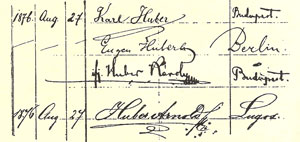 1876 Aug 27 Karl Huber Budapest.
Eugen Huberth Berlin.
Huber Budapest.
1876 Aug 27 Huber Arnold Lugos